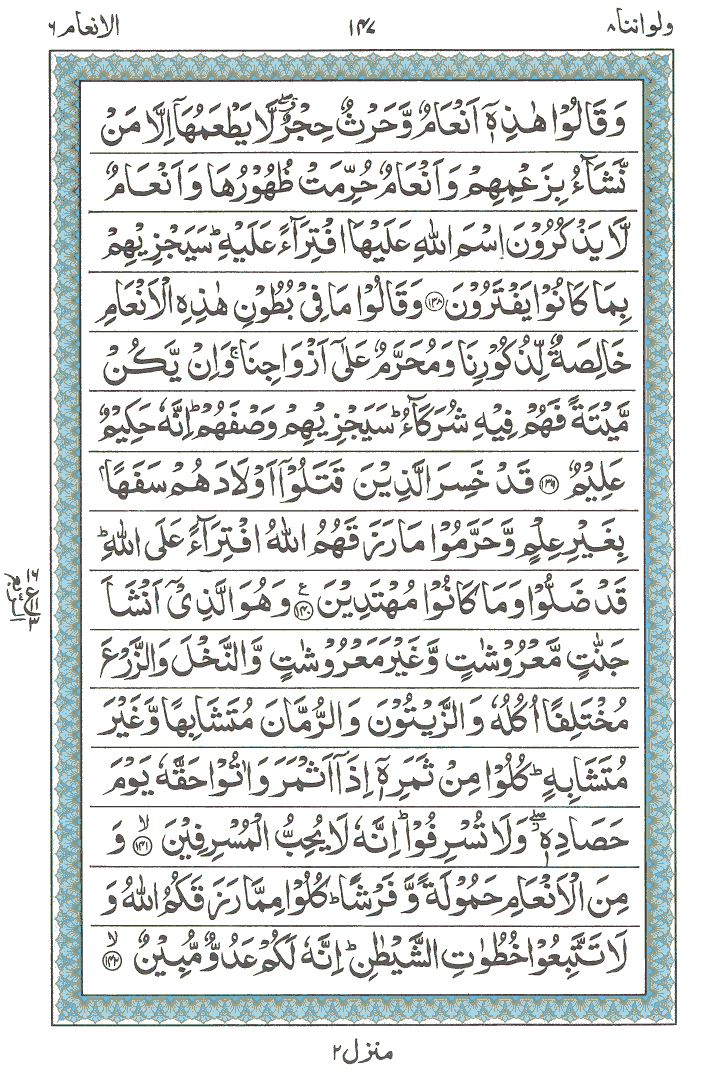 ولواننا ٨ ١۴٧ الانعام ٦
وَقَالُوْا هٰذِهٖۤ اَنْعَامٌ وَّحَرْثٌ حِجْرٌ ۖۗ لَّا يَطْعَمُهَاۤ اِلَّا مَنْ
نَّشَآءُ بِزَعْمِهِمْ وَاَنْعَامٌ حُرِّمَتْ ظُهُوْرُهَا وَاَنْعَامٌ
لَّا يَذْكُرُوْنَ اسْمَ اللّٰهِ عَلَيْهَا افْتِرَآءً عَلَيْهِ ؕ سَيَجْزِيْهِمْ
بِمَا كَانُوْا يَفْتَرُوْنَ ﴿۱۳۸﴾ وَقَالُوْا مَا فِىْ بُطُوْنِ هٰذِهِ الْاَنْعَامِ
خَالِصَةٌ لِّذُكُوْرِنَا وَمُحَرَّمٌ عَلٰٓى اَزْوَاجِنَا ۚ وَاِنْ يَّكُنْ
مَّيْتَةً فَهُمْ فِيْهِ شُرَكَآءُ ؕ سَيَجْزِيْهِمْ وَصْفَهُمْ ؕ اِنَّهٗ حَكِيْمٌ
عَلِيْمٌ ﴿۱۳۹﴾ قَدْ خَسِرَ الَّذِيْنَ قَتَلُوْۤا اَوْلَادَهُمْ سَفَهًۢا
بِغَيْرِ عِلْمٍ وَّحَرَّمُوْا مَا رَزَقَهُمُ اللّٰهُ افْتِرَآءً عَلَى اللّٰهِ ؕ
قَدْ ضَلُّوْا وَمَا كَانُوْا مُهْتَدِيْنَ ﴿۱۴۰﴾ ع وَهُوَ الَّذِىْۤ اَنْشَاَ
جَنّٰتٍ مَّعْرُوْشٰتٍ وَّغَيْرَ مَعْرُوْشٰتٍ وَّالنَّخْلَ وَالزَّرْعَ
مُخْتَلِفًا اُكُلُهٗ وَالزَّيْتُوْنَ وَالرُّمَّانَ مُتَشَابِهًا وَّغَيْرَ
مُتَشَابِهٍ ؕ كُلُوْا مِنْ ثَمَرِهٖۤ اِذَاۤ اَثْمَرَ وَاٰتُوْا حَقَّهٗ يَوْمَ
حَصَادِهٖ ۖؗ وَلَا تُسْرِفُوْا ؕ اِنَّهٗ لَا يُحِبُّ الْمُسْرِفِيْنَ ۙ﴿۱۴۱﴾ وَ
مِنَ الْاَنْعَامِ حَمُوْلَةً وَّفَرْشًا ؕ كُلُوْا مِمَّا رَزَقَكُمُ اللّٰهُ وَ
لَا تَتَّبِعُوْا خُطُوٰتِ الشَّيْطٰنِ ؕ اِنَّهٗ لَكُمْ عَدُوٌّ مُّبِيْنٌ ۙ﴿۱۴۲﴾
منزل ٢